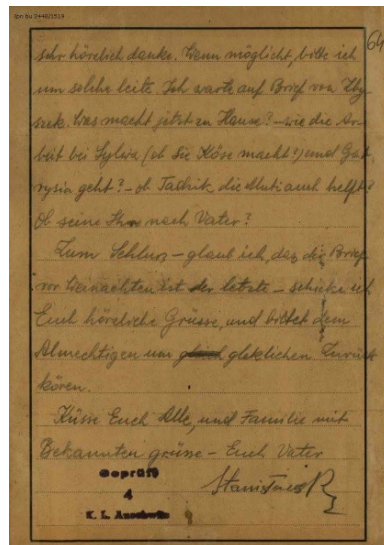 Ipn Bu 2448/1514
64
sehr hörzlich danke. Wenn möglicht, bitte ich
um solche leite. Ich warte auf Brief von Zby
szek. Was macht jetzt zu Hause? – wie die Ar
beit bei Sylwia (ob Sie Köse macht?) und
rysia geht? – ob die Muti auch helft?
Ob seine nach Vater?
Zum Schlus – glaub ich, das die Brief
vor Weinachten ist der letzte – schicke ich
Euch hörzliche Grüsse, und bittet dem
Almechtigen um gleklichen Zurück
kören.
Küsse Euch Alle, und Familie mit
Bekannten grüsse – Euch Vater
Geprüft
4
K. L. Auschwitz